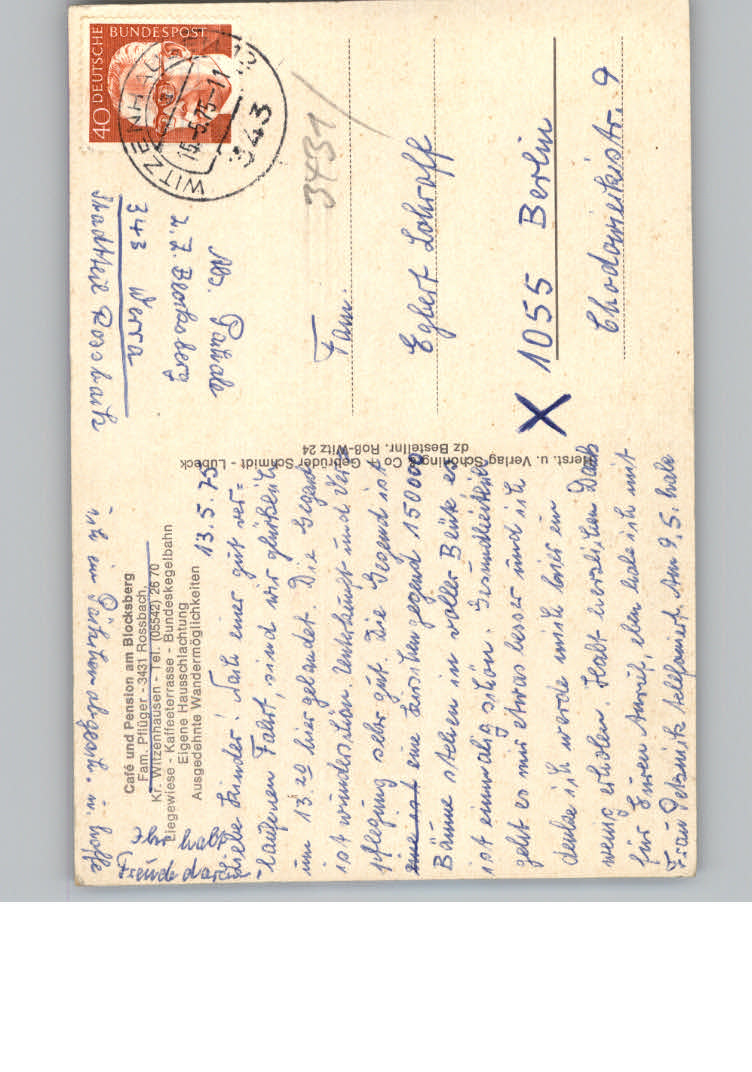 Café und Pension am Blocksberg
Fam. Pflüger - 3431 Rossbach,
Kr. Witzenhausen - Tel. (05542) 26 70
Liegewiese - Kaffeeterrasse - Bundeskegelbahn
Eigene Hausschlachtung
Ausgedehnte Wandermöglichkeiten
13.5.75
Liebe Kinder! Nach einer gut ver=
laufenen Fahrt, sind wir glücklich
um 13.20 hier gelandet. Die Gegend
ist wunderschön Unterkunft und Ver=
pflegung sehr gut. Die Gegend ist
eine Kirschengegend 150000
Bäume stehen in voller Blüte es
ist einmalig schön. Gesundheitlich
geht es mir etwas besser und ich
denke ich werde mich hier ein
wenig erholen. Habt herzlichen Dank
für Euren Anruf, eben habe ich mit
Frau telefoniert. Am 9.5. habe
ich ein abgesch. u. hoffe
Ihr habt
Freude daran
Hierst. u. Verlag Schöning & Co + Gebrüder Schmidt - Lübeck
dz Bestellnr. Roß-Witz 24
DEUTSCHE BUNDESPOST
40
WITZENHAUSEN 12
15.-5.75-11
343
3431
Abs.
z. Z. Blocksberg
343 Werra
Stadtteil Rossbach
Fam.
Egbert Lohroff
X 1055 Berlin
Chodowieckistr. 9